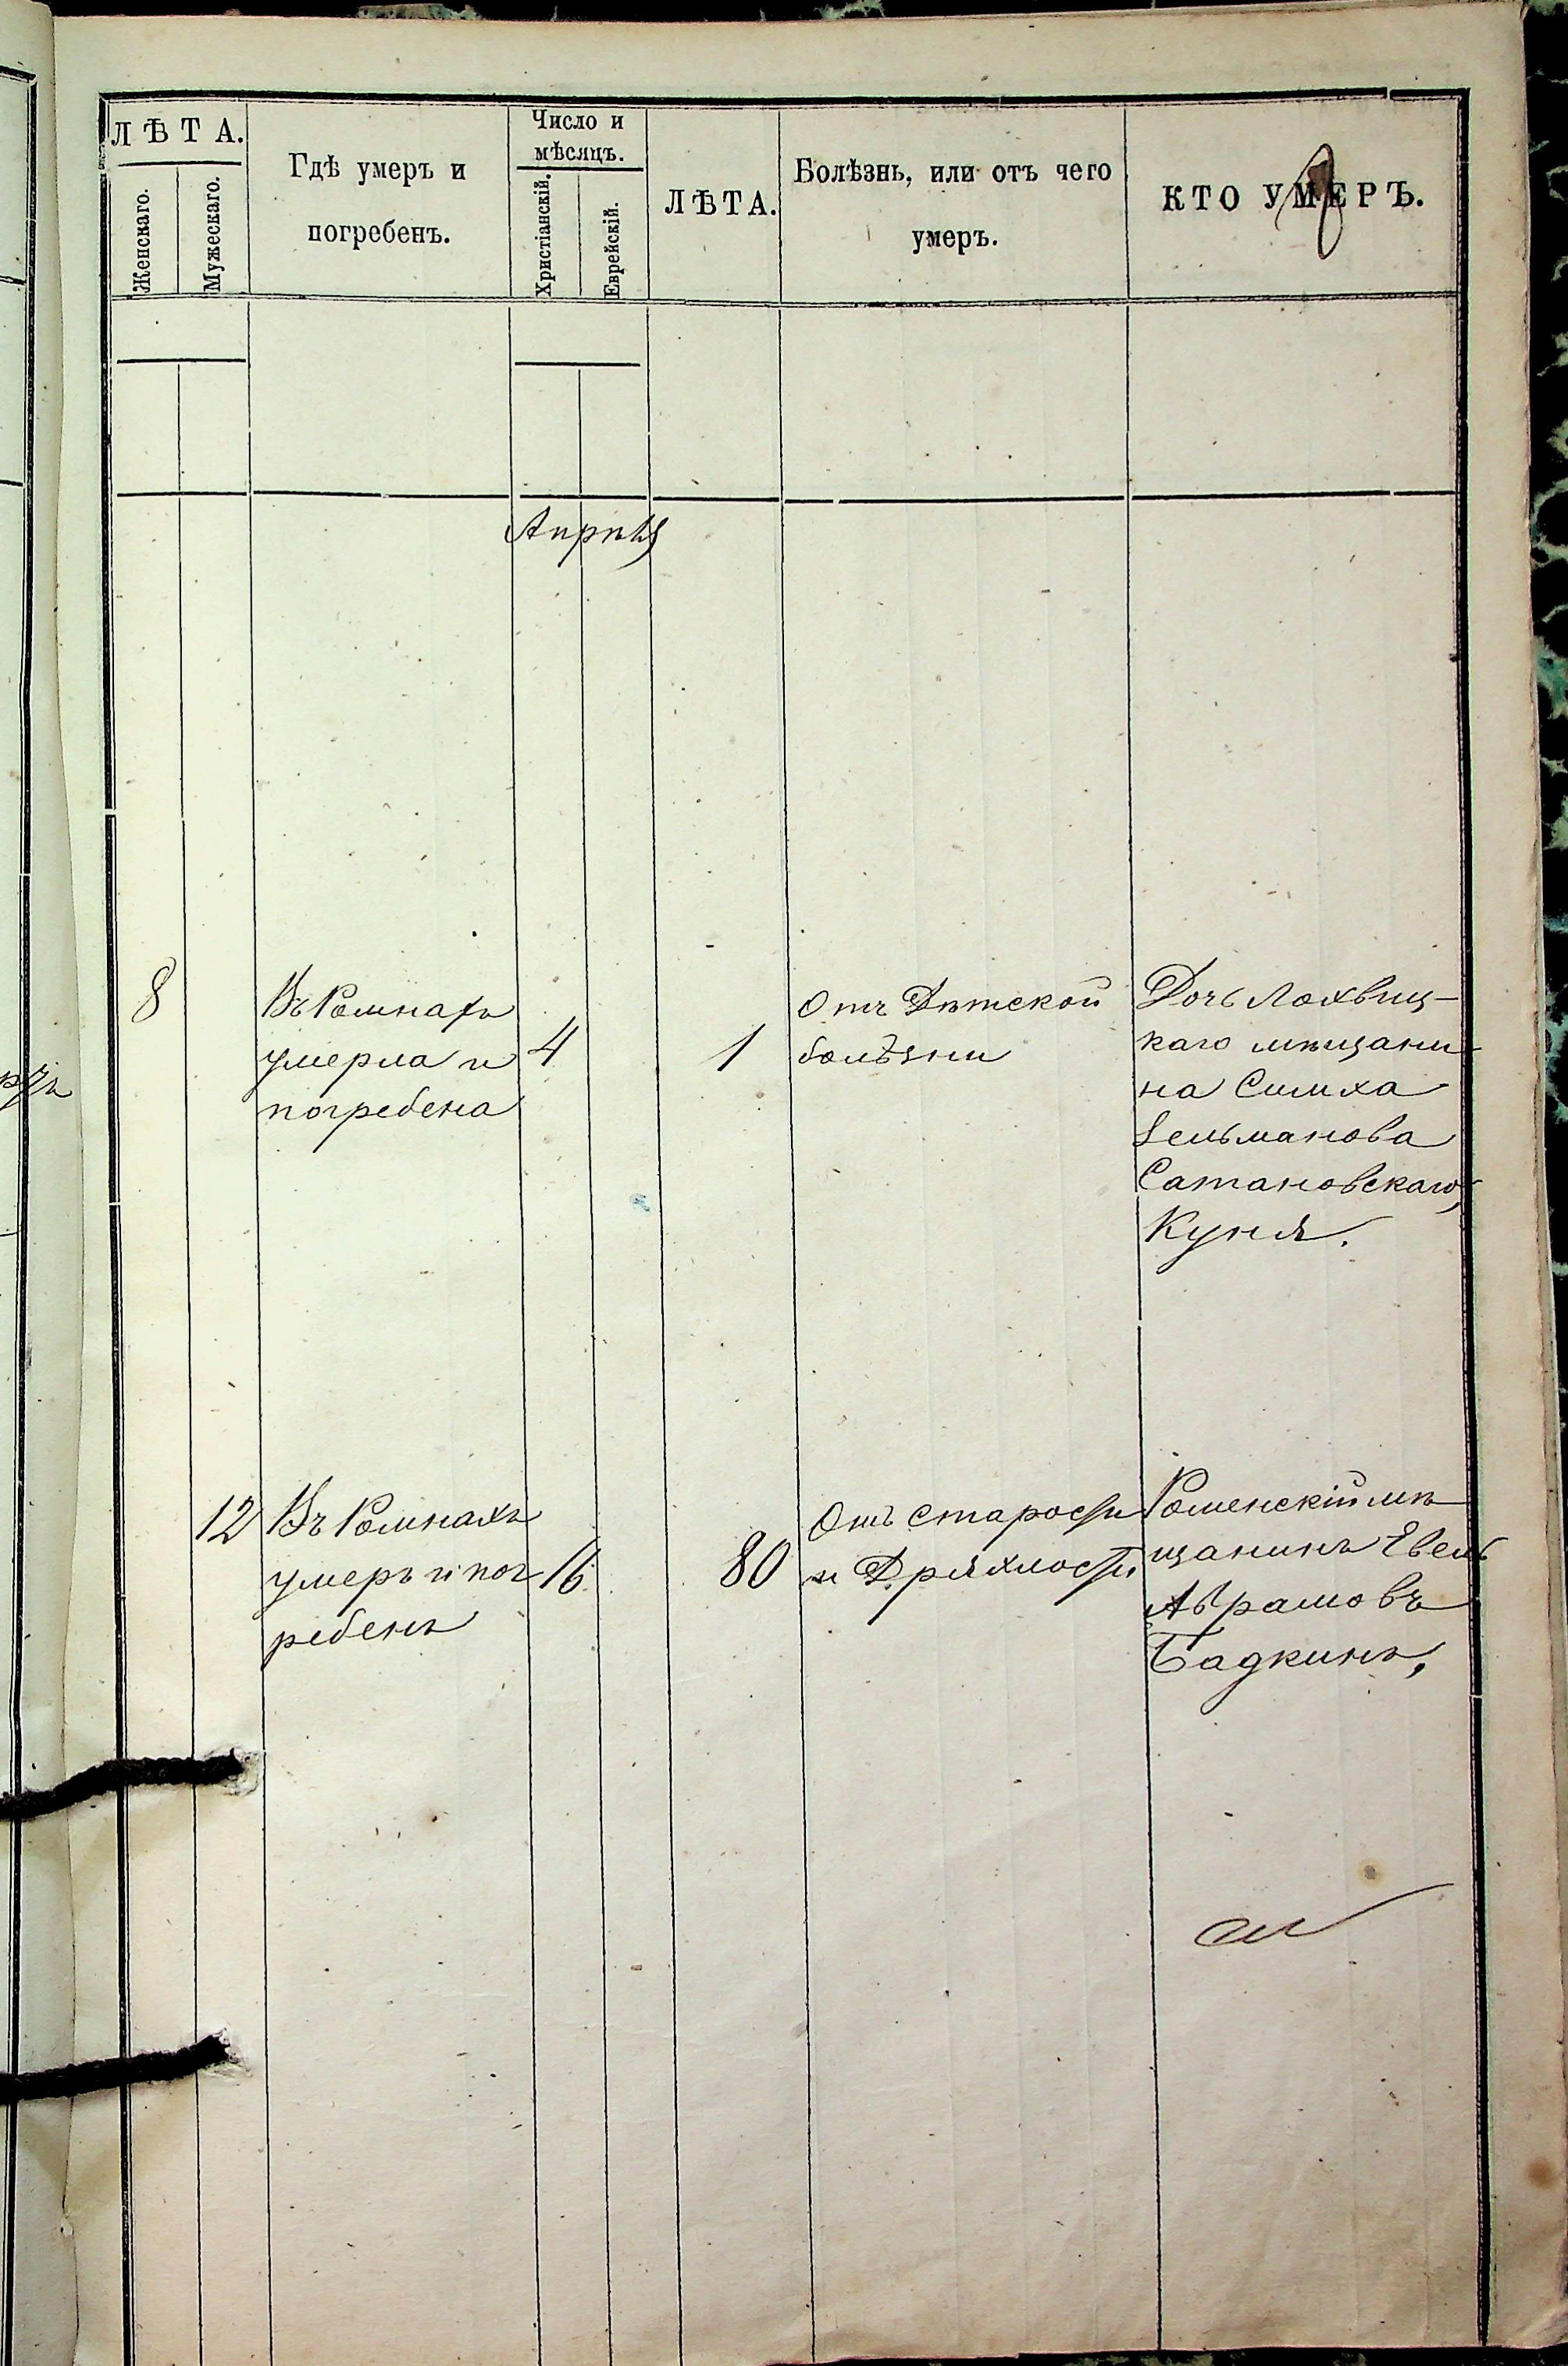 ЛѢТА.
Женскаго.
Мужескаго.
Гдѣ умеръ и
погребенъ.
Число и
мѣсяцъ.
Христіанскій.
Еврейскій.
ЛѢТА.
Болѣзнь, или отъ чего
умеръ.
КТО УМЕРЪ.
Апрѣля
8
Въ Ромнахъ
умерла и
погребена
4
1
Отъ Дѣтской
болѣзни
Дочь Лохвиц-
каго мѣщани-
на Симха
Зельманова
Сатановскаго,
Куня.
12
Въ Ромнахъ
умеръ и пог
ребенъ
16
80
Отъ старости
и Дряхлости
Роменскій мѣ
щанинъ Евель
Абрамовъ
Бадкинъ,